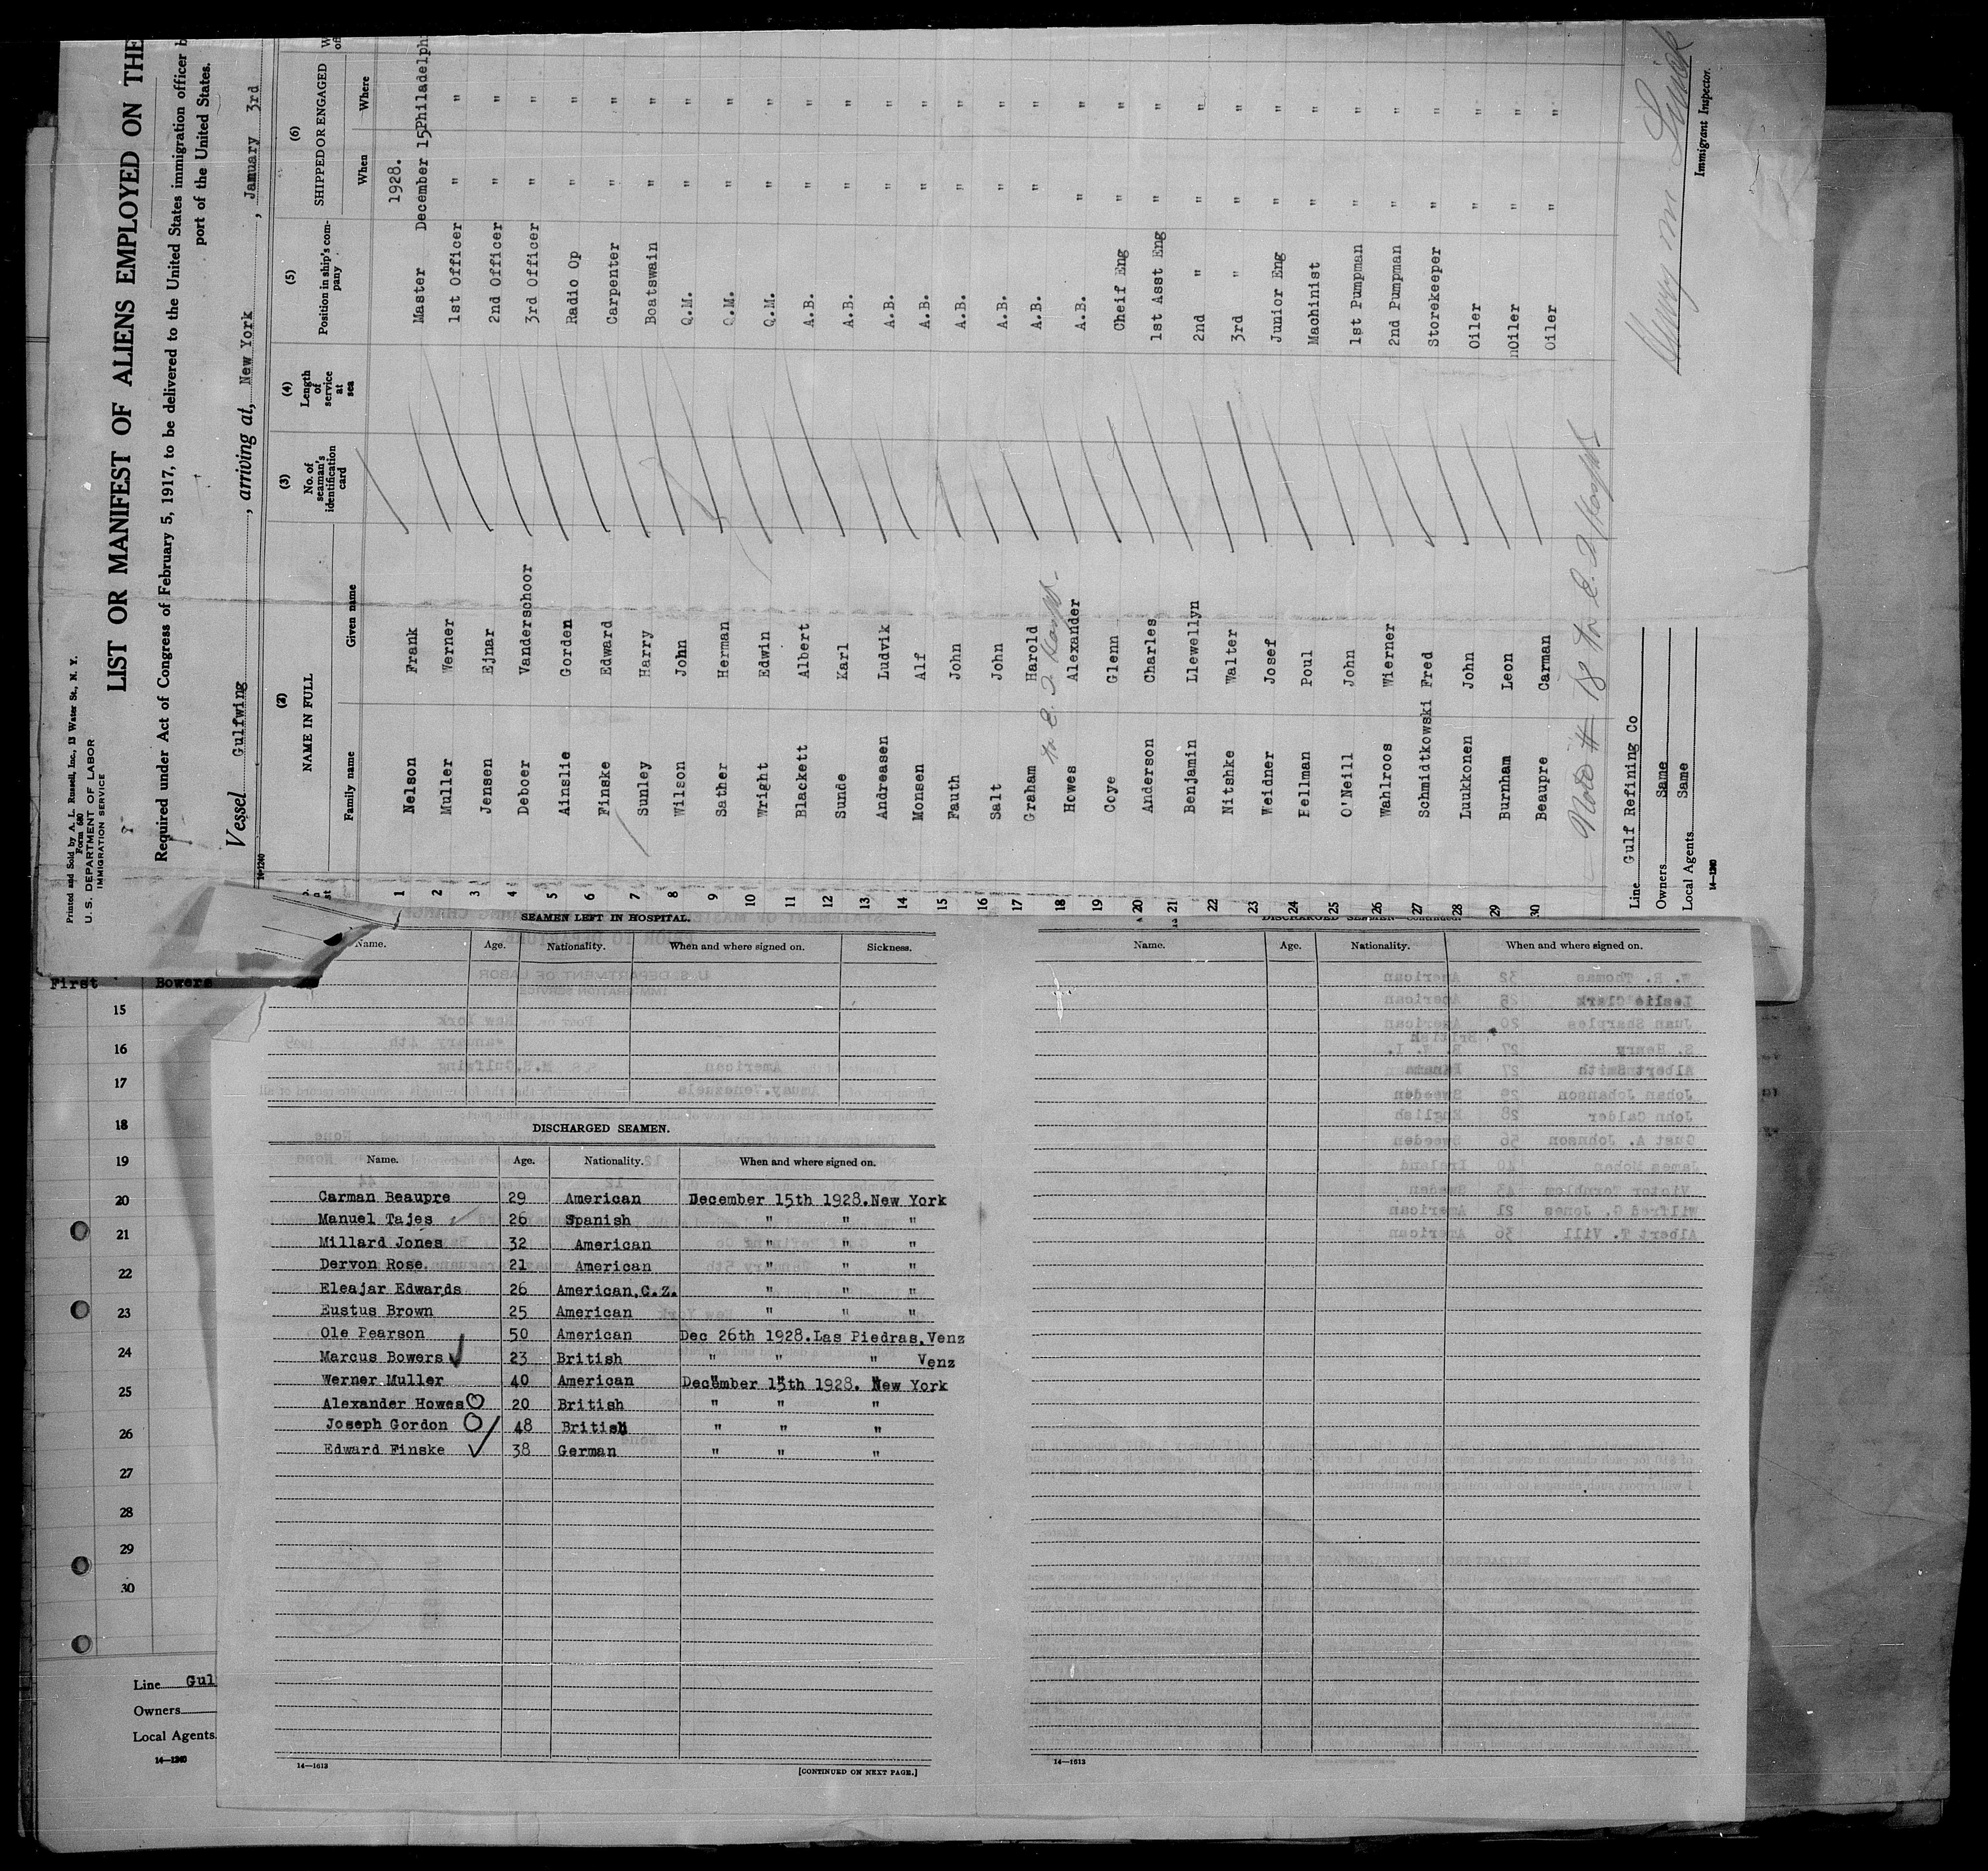 Printed and Sold by A. L. Russell, Inc., 13 Water St., N. Y.
Form 680
U. S. DEPARTMENT OF LABOR
IMMIGRATION SERVICE
LIST OR MANIFEST OF ALIENS EMPLOYED ON THE
Required under Act of Congress of February 5, 1917, to be delivered to the United States immigration officer b
port of the United States.
Vessel Gulfwing, arriving at, New York, January 3rd
14-1240
(2) (3) (4) (5) (6)
NAME IN FULL No. of seaman's identification card Length of service at sea Position in ship's company SHIPPED OR ENGAGED
Family name Given name When Where
1928.
1 Nelson Frank Master December 15 Philadelph
2 Muller Werner 1st Officer " "
3 Jensen Ejnar 2nd Officer " "
4 Deboer Vanderschoor 3rd Officer " "
5 Ainslie Gorden Radio Op " "
6 Finske Edward Carpenter " "
7 Sunley Harry Boatswain " "
8 Wilson John Q.M. " "
9 Sather Herman Q.M. " "
10 Wright Edwin Q.M. " "
11 Blackett Albert A.B. " "
12 Sunde Karl A.B. " "
13 Andreasen Ludvik A.B. " "
14 Monsen Alf A.B. " "
15 Fauth John A.B. " "
16 Salt John A.B. " "
17 Graham Harold A.B. " "
18 Howes Alexander A.B. " "
19 Coye Glenn Cheif Eng " "
20 Anderson Charles 1st Asst Eng " "
21 Benjamin Llewellyn 2nd " " "
22 Nitshke Walter 3rd " " "
23 Weidner Josef Junior Eng " "
24 Fellman Poul Machinist " "
25 O'Neill John 1st Pumpman " "
26 Wahlroos Wierner 2nd Pumpman " "
27 Schmidtkowski Fred Storekeeper " "
28 Luukkonen John Oiler " "
29 Burnham Leon nOiler " "
30 Beaupre Carman Oiler " "
Note # 18 to E. I. Hospt
Line Gulf Refining Co
Owners Same
Local Agents Same
14-1240
Immigrant Inspector.
First Bowers
15
16
17
18
19
20
21
22
23
24
25
26
27
28
29
30
Line Gul
Owners
Local Agents
14-1240
SEAMEN LEFT IN HOSPITAL.
Name. Age. Nationality. When and where signed on. Sickness.
DISCHARGED SEAMEN.
Name. Age. Nationality. When and where signed on.
Carman Beaupre 29 American December 15th 1928.New York
Manuel Tajes 26 Spanish " " "
Millard Jones 32 American " " "
Dervon Rose. 21 American " " "
Eleajar Edwards 26 American.C.Z. " " "
Eustus Brown 25 American " " "
Ole Pearson 50 American Dec 26th 1928.Las Piedras.Venz
Marcus Bowers 23 British " " " Venz
Werner Muller 40 American December 15th 1928. New York
Alexander Howes 20 British " " "
Joseph Gordon 48 British " " "
Edward Finske 38 German " " "
14-1613
[CONTINUED ON NEXT PAGE.]
DISCHARGED SEAMEN—Continued.
Name. Age. Nationality. When and where signed on.
W. R. Thomas 32 American
Leslie Clark 25 American
Juan Sharples 20 American
S. Henry 27 British B. W. I.
Albert Smith 27
Johan Johanson 29 Sweeden
John Calder 28 English
Gust A. Johnson 56 Sweeden
James Mohen 40 Ireland
Victor Tornblom 43 Sweden
Wilfred G. Jones 21 American
Albert T. Vill 36 American
14-1613